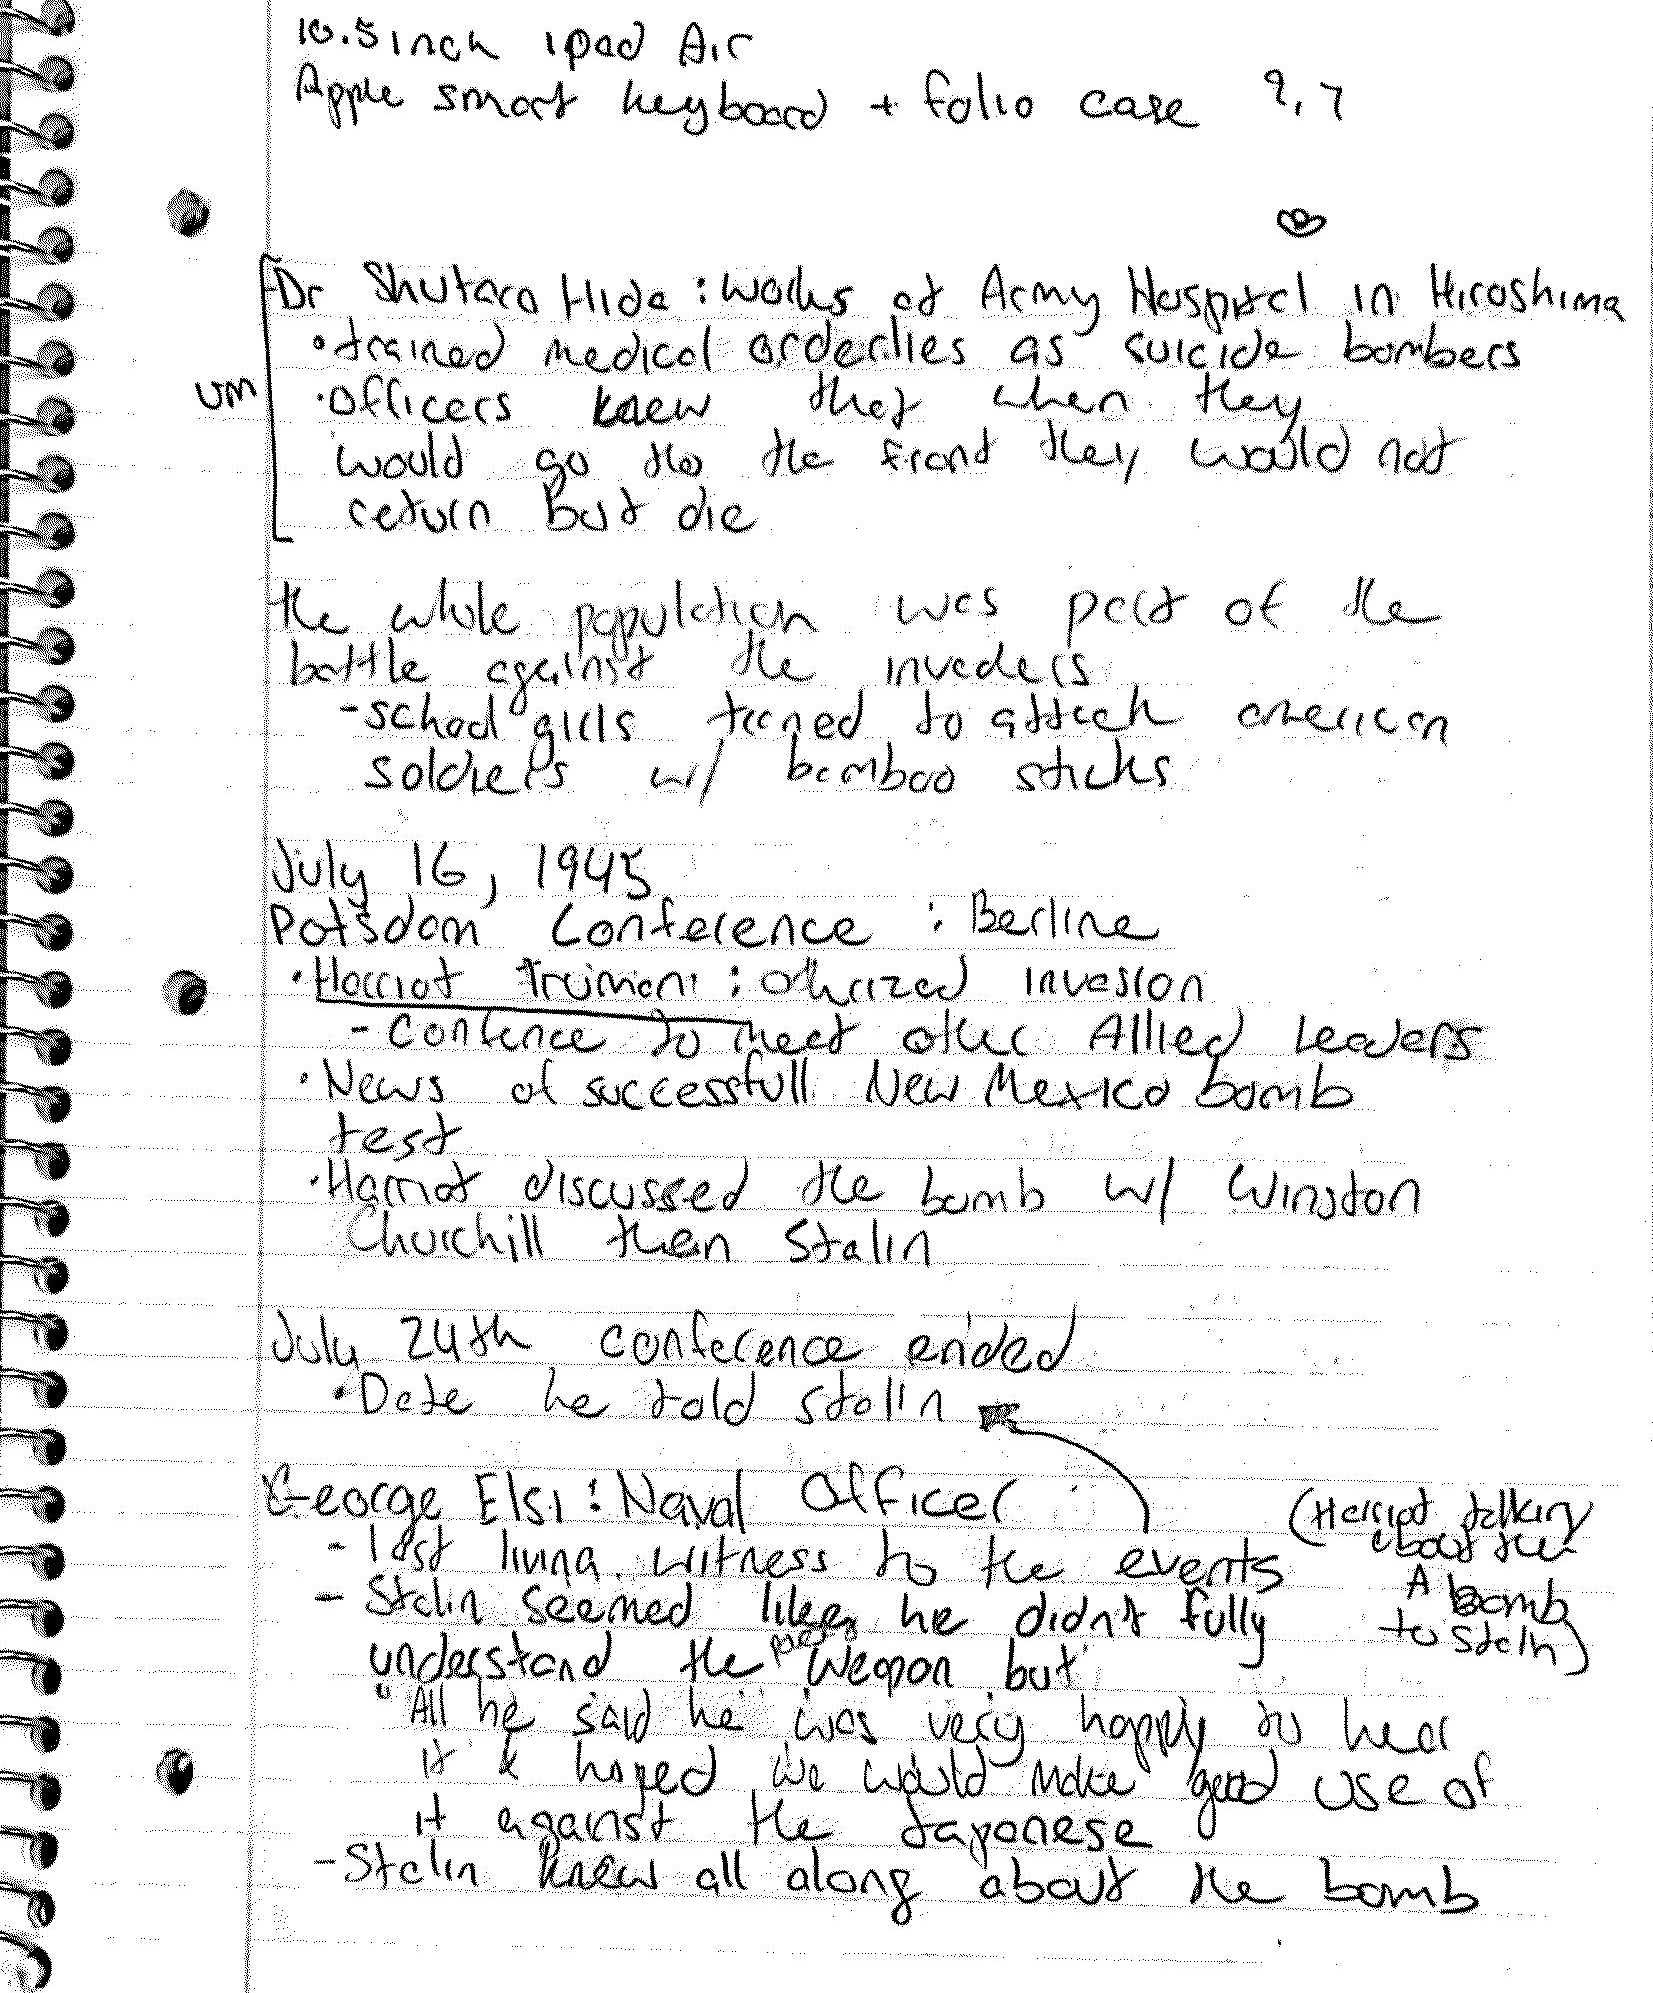 10.5 inch ipad Air
Apple smart keyboard + folio case 9.7
Dr Shutaro Hida : works at Army Hospital in Hiroshima
• trained medical orderlies as suicide bombers
um
• Officers knew that when they
would go tho the front they would not
return but die
the whole population was part of the
battle against the invaders
- school girls trained to attack american
soldiers w/ bamboo sticks
July 16, 1945
Potsdam Conference : Berline
• Harriot Truman : othrized invasion
- Confence to meet other Allied Leaders
• News of successfull New Mexico bomb
test
• Harriot discussed the bomb w/ Winston
Churchill then Stalin
July 24th conference ended
• Date he told stalin
George Elsi : Naval Officer
(Harriot talking
about the
A bomb
to Stalin)
- last living witness to the events
- Stalin seemed like he didn't fully
understand the weapon but
" All he said he was very happy to hear
it & hoped we would make good use of
it against the Japonese
- Stalin knew all along about the bomb